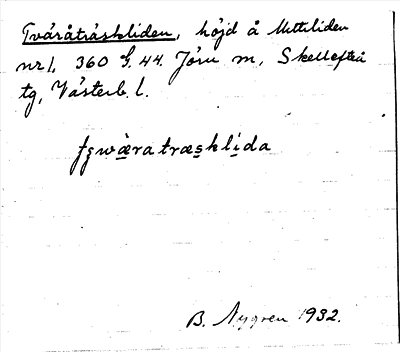 Tvåråträskliden, höjd å Mittiliden
nr 1, 360 f. 44. Jörn sn, Skellefteå
tg, Västerb. l.
tswäratræsklida
B. Nygren 1932.